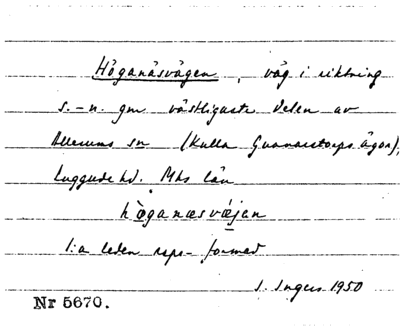 Höganäsvägen, väg i riktning
s.-n. gm västligaste delen av
Allerums sn (Kulla Gunnarstorps ägor),
Luggude hd. Mhs län
hòganæsvæ̀jan
1:a leden rspr-formed
I. Ingers 1950
Nr 5670.